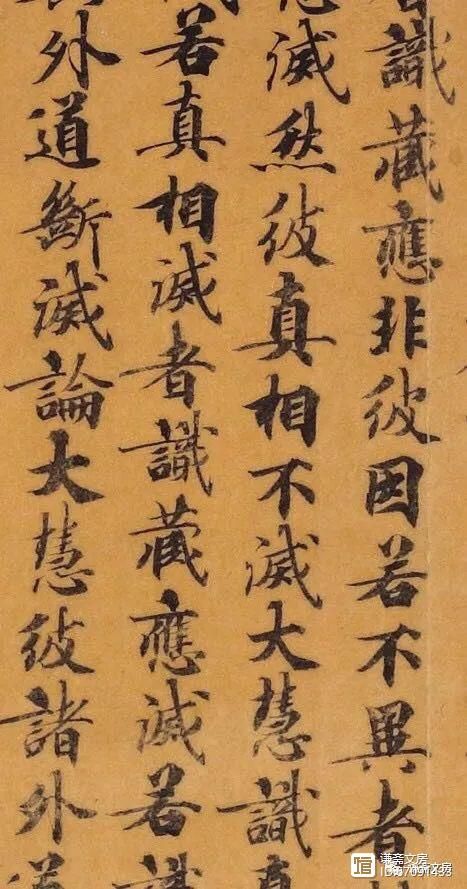 識藏應非彼因若不異者
滅然彼真相不滅大慧識真
若真相滅者識藏應滅若識
外道斷滅論大慧彼諸外道
谦斋文房